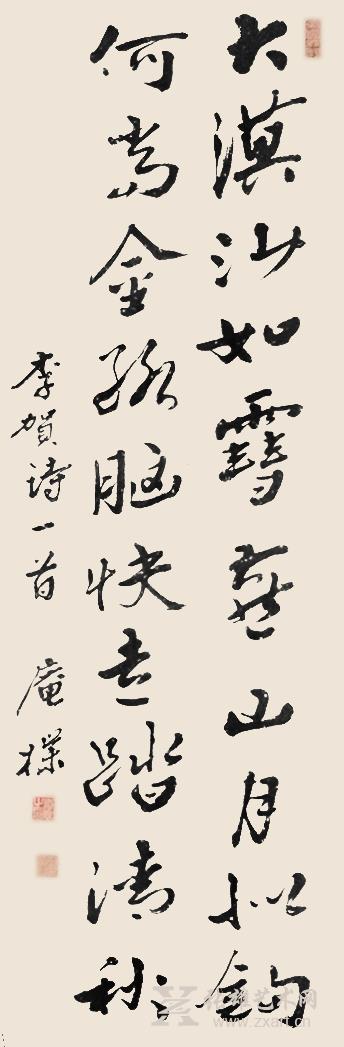 大漠沙如雪燕山月似钩
何当金络脑快走踏清秋
李贺诗一首 庵樸
艺术网
www.zxart.cn